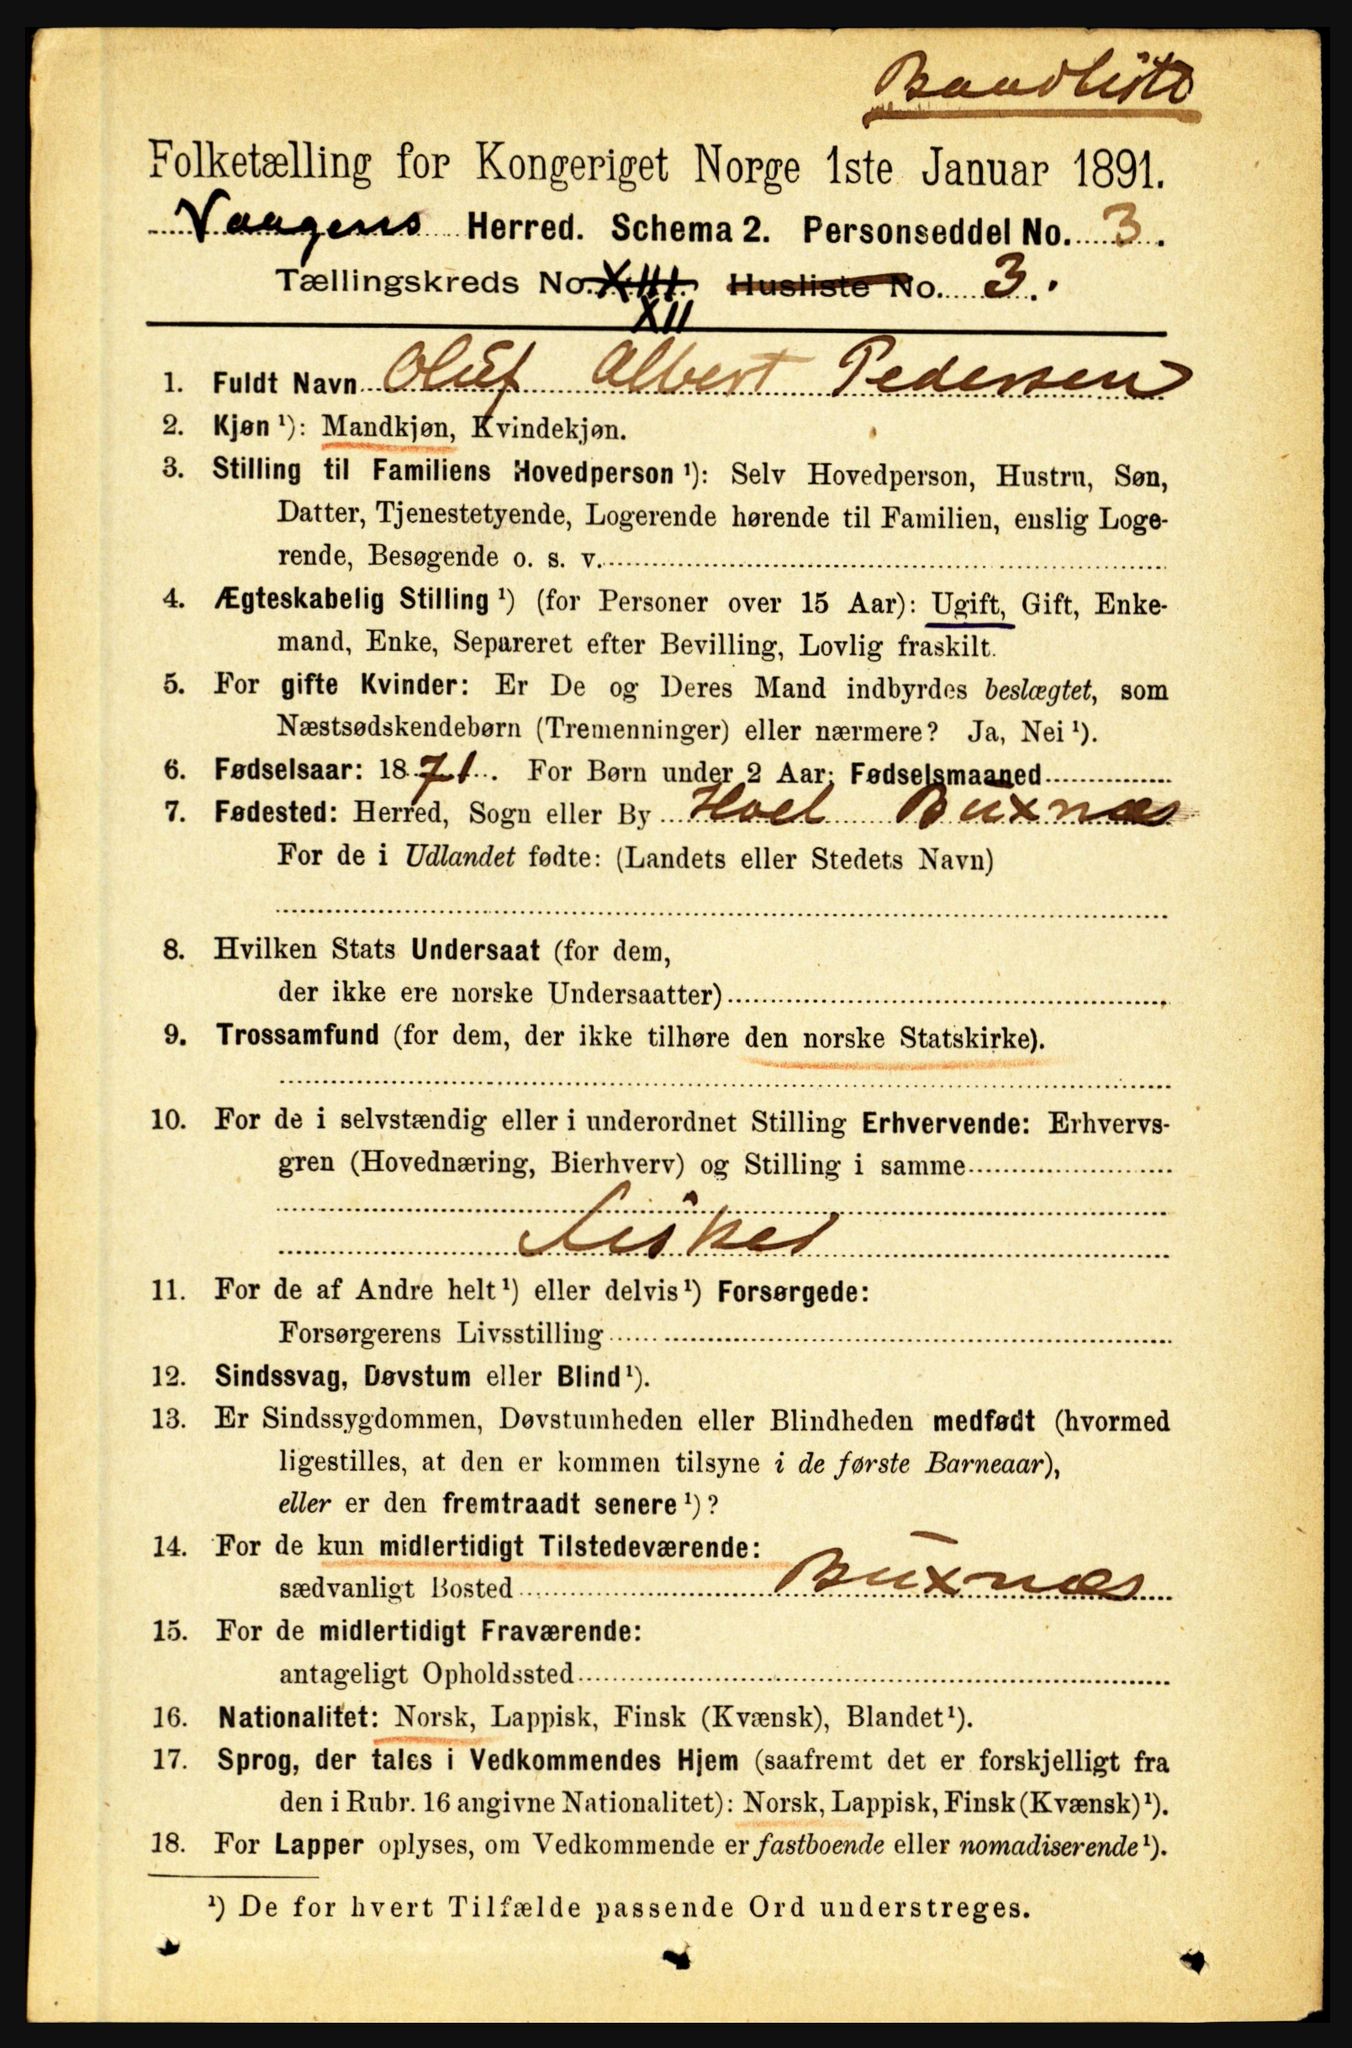 Baadliste
Folketælling for Kongeriget Norge 1ste Januar 1891.
Vaagens Herred. Schema 2. Personseddel No. 3.
Tællingskreds No. XIII Husliste No. 3.
XII
1. Fuldt Navn Oluf Albert Pedersen
2. Kjøn ¹): Mandkjøn, Kvindekjøn.
3. Stilling til Familiens Hovedperson ¹): Selv Hovedperson, Hustru, Søn,
Datter, Tjenestetyende, Logerende hørende til Familien, enslig Loge-
rende, Besøgende o. s. v.
4. Ægteskabelig Stilling ¹) (for Personer over 15 Aar): Ugift, Gift, Enke-
mand, Enke, Separeret efter Bevilling, Lovlig fraskilt.
5. For gifte Kvinder: Er De og Deres Mand indbyrdes beslægtet, som
Næstsødskendebørn (Tremenninger) eller nærmere? Ja, Nei ¹).
6. Fødselsaar: 1871. For Børn under 2 Aar: Fødselsmaaned
7. Fødested: Herred, Sogn eller By Hoel Buxnæs
For de i Udlandet fødte: (Landets eller Stedets Navn)
8. Hvilken Stats Undersaat (for dem,
der ikke ere norske Undersaatter)
9. Trossamfund (for dem, der ikke tilhøre den norske Statskirke).
10. For de i selvstændig eller i underordnet Stilling Erhvervende: Erhvervs-
gren (Hovednæring, Bierhverv) og Stilling i samme
Fisker
11. For de af Andre helt ¹) eller delvis ¹) Forsørgede:
Forsørgerens Livsstilling
12. Sindssvag, Døvstum eller Blind ¹).
13. Er Sindssygdommen, Døvstumheden eller Blindheden medfødt (hvormed
ligestilles, at den er kommen tilsyne i de første Barneaar),
eller er den fremtraadt senere ¹)?
14. For de kun midlertidigt Tilstedeværende:
sædvanligt Bosted Buxnæs
15. For de midlertidigt Fraværende:
antageligt Opholdssted
16. Nationalitet: Norsk, Lappisk, Finsk (Kvænsk), Blandet ¹).
17. Sprog, der tales i Vedkommendes Hjem (saafremt det er forskjelligt fra
den i Rubr. 16 angivne Nationalitet): Norsk, Lappisk, Finsk (Kvænsk) ¹).
18. For Lapper oplyses, om Vedkommende er fastboende eller nomadiserende ¹).
¹) De for hvert Tilfælde passende Ord understreges.